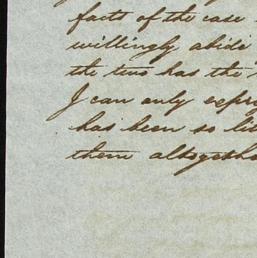 facts of the case
willingly abide
the two has the
I can only expre
has been so li
them altogethe